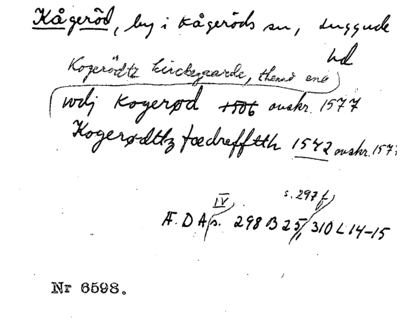 Kågeröd, by i Kågeröds sn, Luggude
hd
Kogerödtz kirckegaarde, thend ene
wdj Kogerød 1506 avskr. 1577
Kogerødttz fædrefftth 1542 avskr. 157
IV s. 297 f
Æ.D.A. s. 298 B 25, 310 L 14-15
Nr 6598.